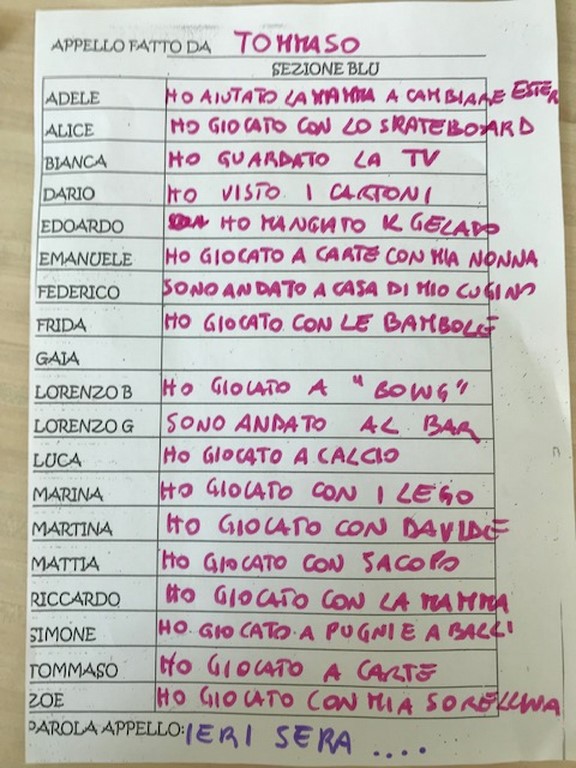 APPELLO FATTO DA TOMMASO
SEZIONE BLU
ADELE HO AIUTATO LA MAMMA A CAMBIARE ESTER
ALICE HO GIOCATO CON LO SKATEBOARD
BIANCA HO GUARDATO LA TV
DARIO HO VISTO I CARTONI
EDOARDO HO MANGIATO IL GELATO
EMANUELE HO GIOCATO A CARTE CON MIA NONNA
FEDERICO SONO ANDATO A CASA DI MIO CUGINO
FRIDA HO GIOCATO CON LE BAMBOLE
GAIA
LORENZO B HO GIOCATO A "BOWG"
LORENZO G SONO ANDATO AL BAR
LUCA HO GIOCATO A CALCIO
MARINA HO GIOCATO CON I LEGO
MARTINA HO GIOCATO CON DAVIDE
MATTIA HO GIOCATO CON JACOPO
RICCARDO HO GIOCATO CON LA MAMMA
SIMONE HO GIOCATO A PUGNI E A BALLI
TOMMASO HO GIOCATO A CARTE
ZOE HO GIOCATO CON MIA SORELLINA
PAROLA APPELLO: IERI SERA ....